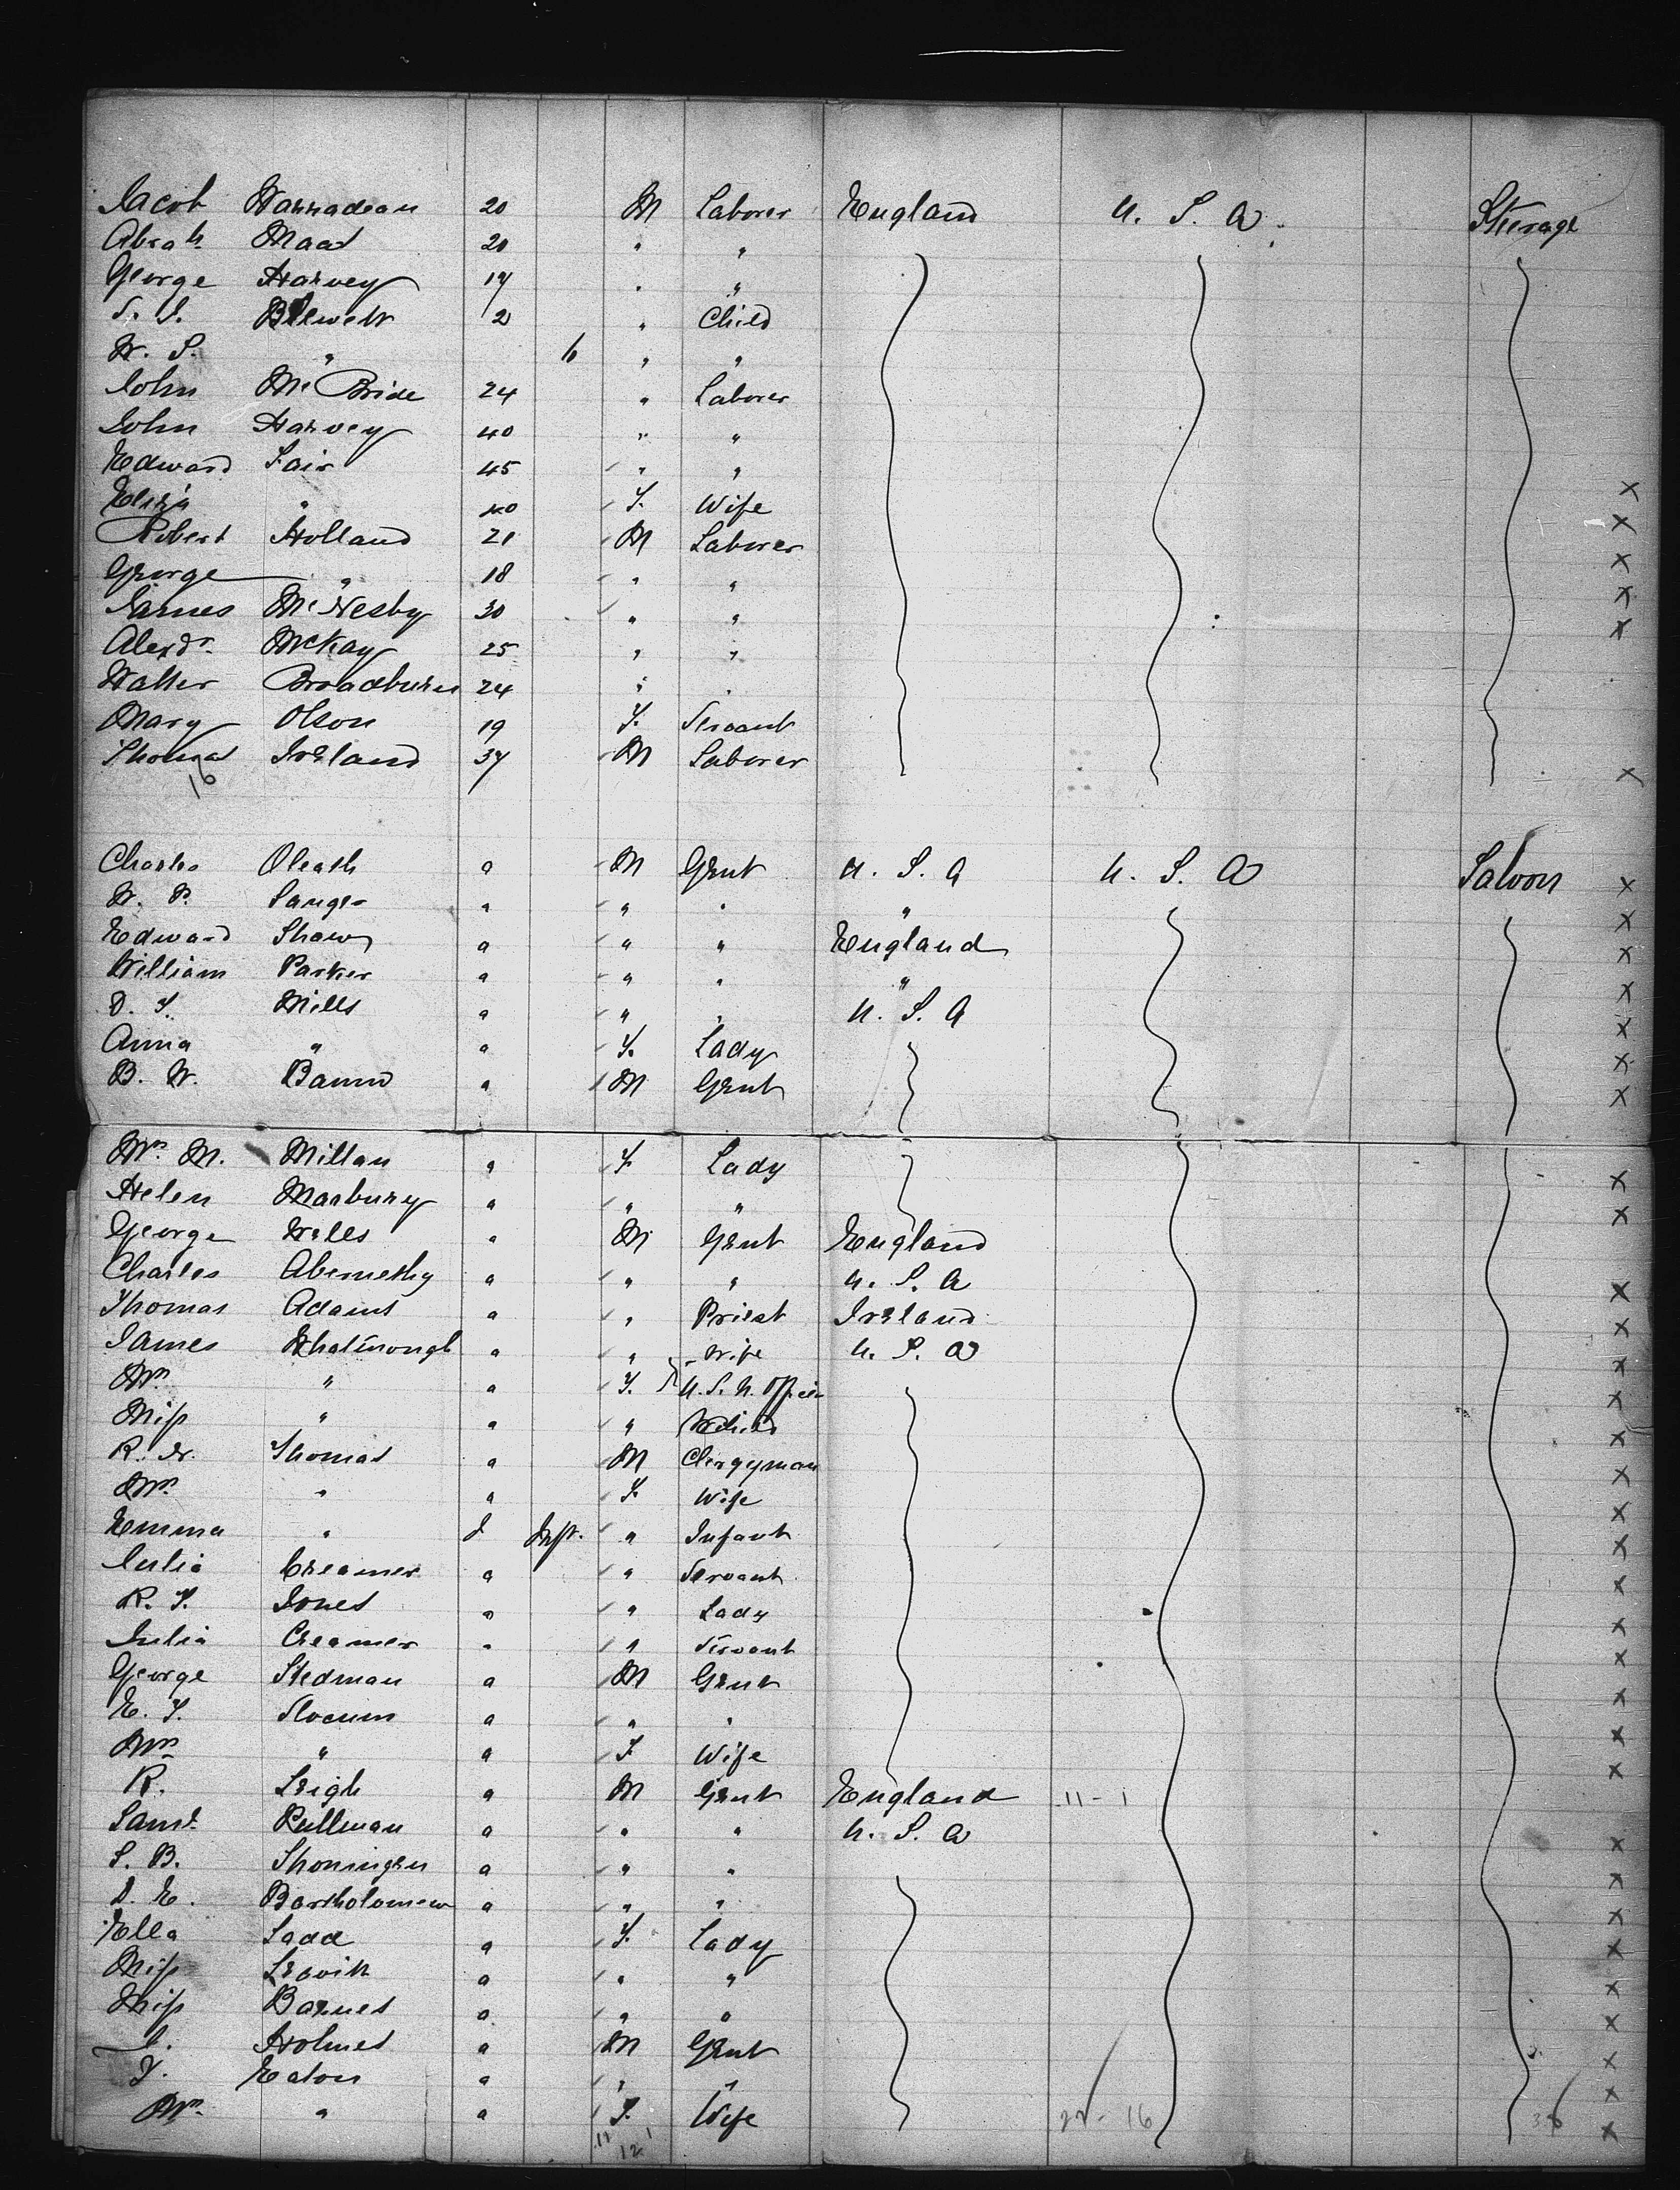 Jacob Warradeau 20 M Laborer England U. S. A. Steerage
Abrah Maas 20 " "
George Harvey 19 " "
S. J. Blewett 2 " Child
W. S. " 6 " "
John McBride 24 " Laborer
John Harvey 40 " "
Edward Fair 45 " "
Eliza " 40 F. Wife
Robert Holland 21 M Laborer
George " 18 " "
James McNesby 30 " "
Alexdr. McKay 25 " "
Walter Broadburn 24 " "
Mary Olson 19 F. Servant
Thomas Ireland 37 M Laborer
16
Charles Oleath a M Gent U. S. A U. S. A Saloon
W. P. Sanger a " " "
Edward Shaw a " " England
William Parker a " " "
D. F. Mills a " " U. S. A
Anna " a F. Lady
B. W. a M Gent
Mrs. M. Millan a F. Lady
Helen Marbury a " "
George Wells a M Gent England
Charles Abernethy a " " U. S. A
Thomas Adams a " Priest Ireland
James a " Wife U. S. A
Mrs " a F. U. S. N. Officer
Miss " a "
R. W. Thomas a M Clergyman
Mrs. " a F. Wife
Emma " Inft. " Infant
Julia Creamer a " Servant
R. F. Jones a " Lady
Julia Creamer " " Servant
George Stedman a M Gent
E. F. Slocum a " "
Mrs " a F. Wife
R. Leigh a M Gent England 11 - 1
Saml. Pullman a " " U. S. A
S. B. Shoningen a " "
D. E. Bartholomew a " "
Ella Ladd a F. Lady
Miss Leavitt a " "
Miss Barnes a " "
J. Holmes a M Gent
F. Eaton a " "
Mrs. " a F. Wife 22 - 16 38
11 12 1